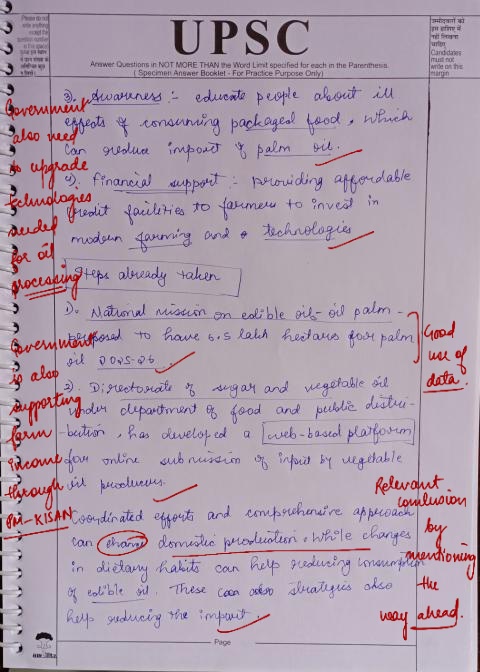 Please do not write anything except the question number in this space
UPSC
Answer Questions in NOT MORE THAN the Word Limit specified for each in the Parenthesis.
( Specimen Answer Booklet - For Practice Purpose Only)
उम्मीदवारों को इस हाशिए में नहीं लिखना चाहिए
Candidates must not write on this margin
3). Awareness :- educate people about ill
effects of consuming packaged food, which
can reduce import of palm oil.
4). Financial support :- providing affordable
credit facilities to farmers to invest in
modern farming and technologies
Government
also need
to upgrade
technologies
needed
for oil
processing
Steps already taken
1). National mission on edible oils-oil palm-
proposed to have 6.5 lakh hectares for palm
oil 2025-26
Good
use of
data.
2). Directorate of sugar and vegetable oil
under department of food and public distri-
bution, has developed a web-based platform
for online submission of input by vegetable
oil producers.
Government
is also
supporting
farm
income
through
PM-KISAN
Coordinated efforts and comprehensive approach
can change domestic production. While changes
in dietary habits can help reducing consumption
of edible oil. These strategies also
help reducing the import.
Relevant
conclusion
by
mentioning
the
way ahead.
Page